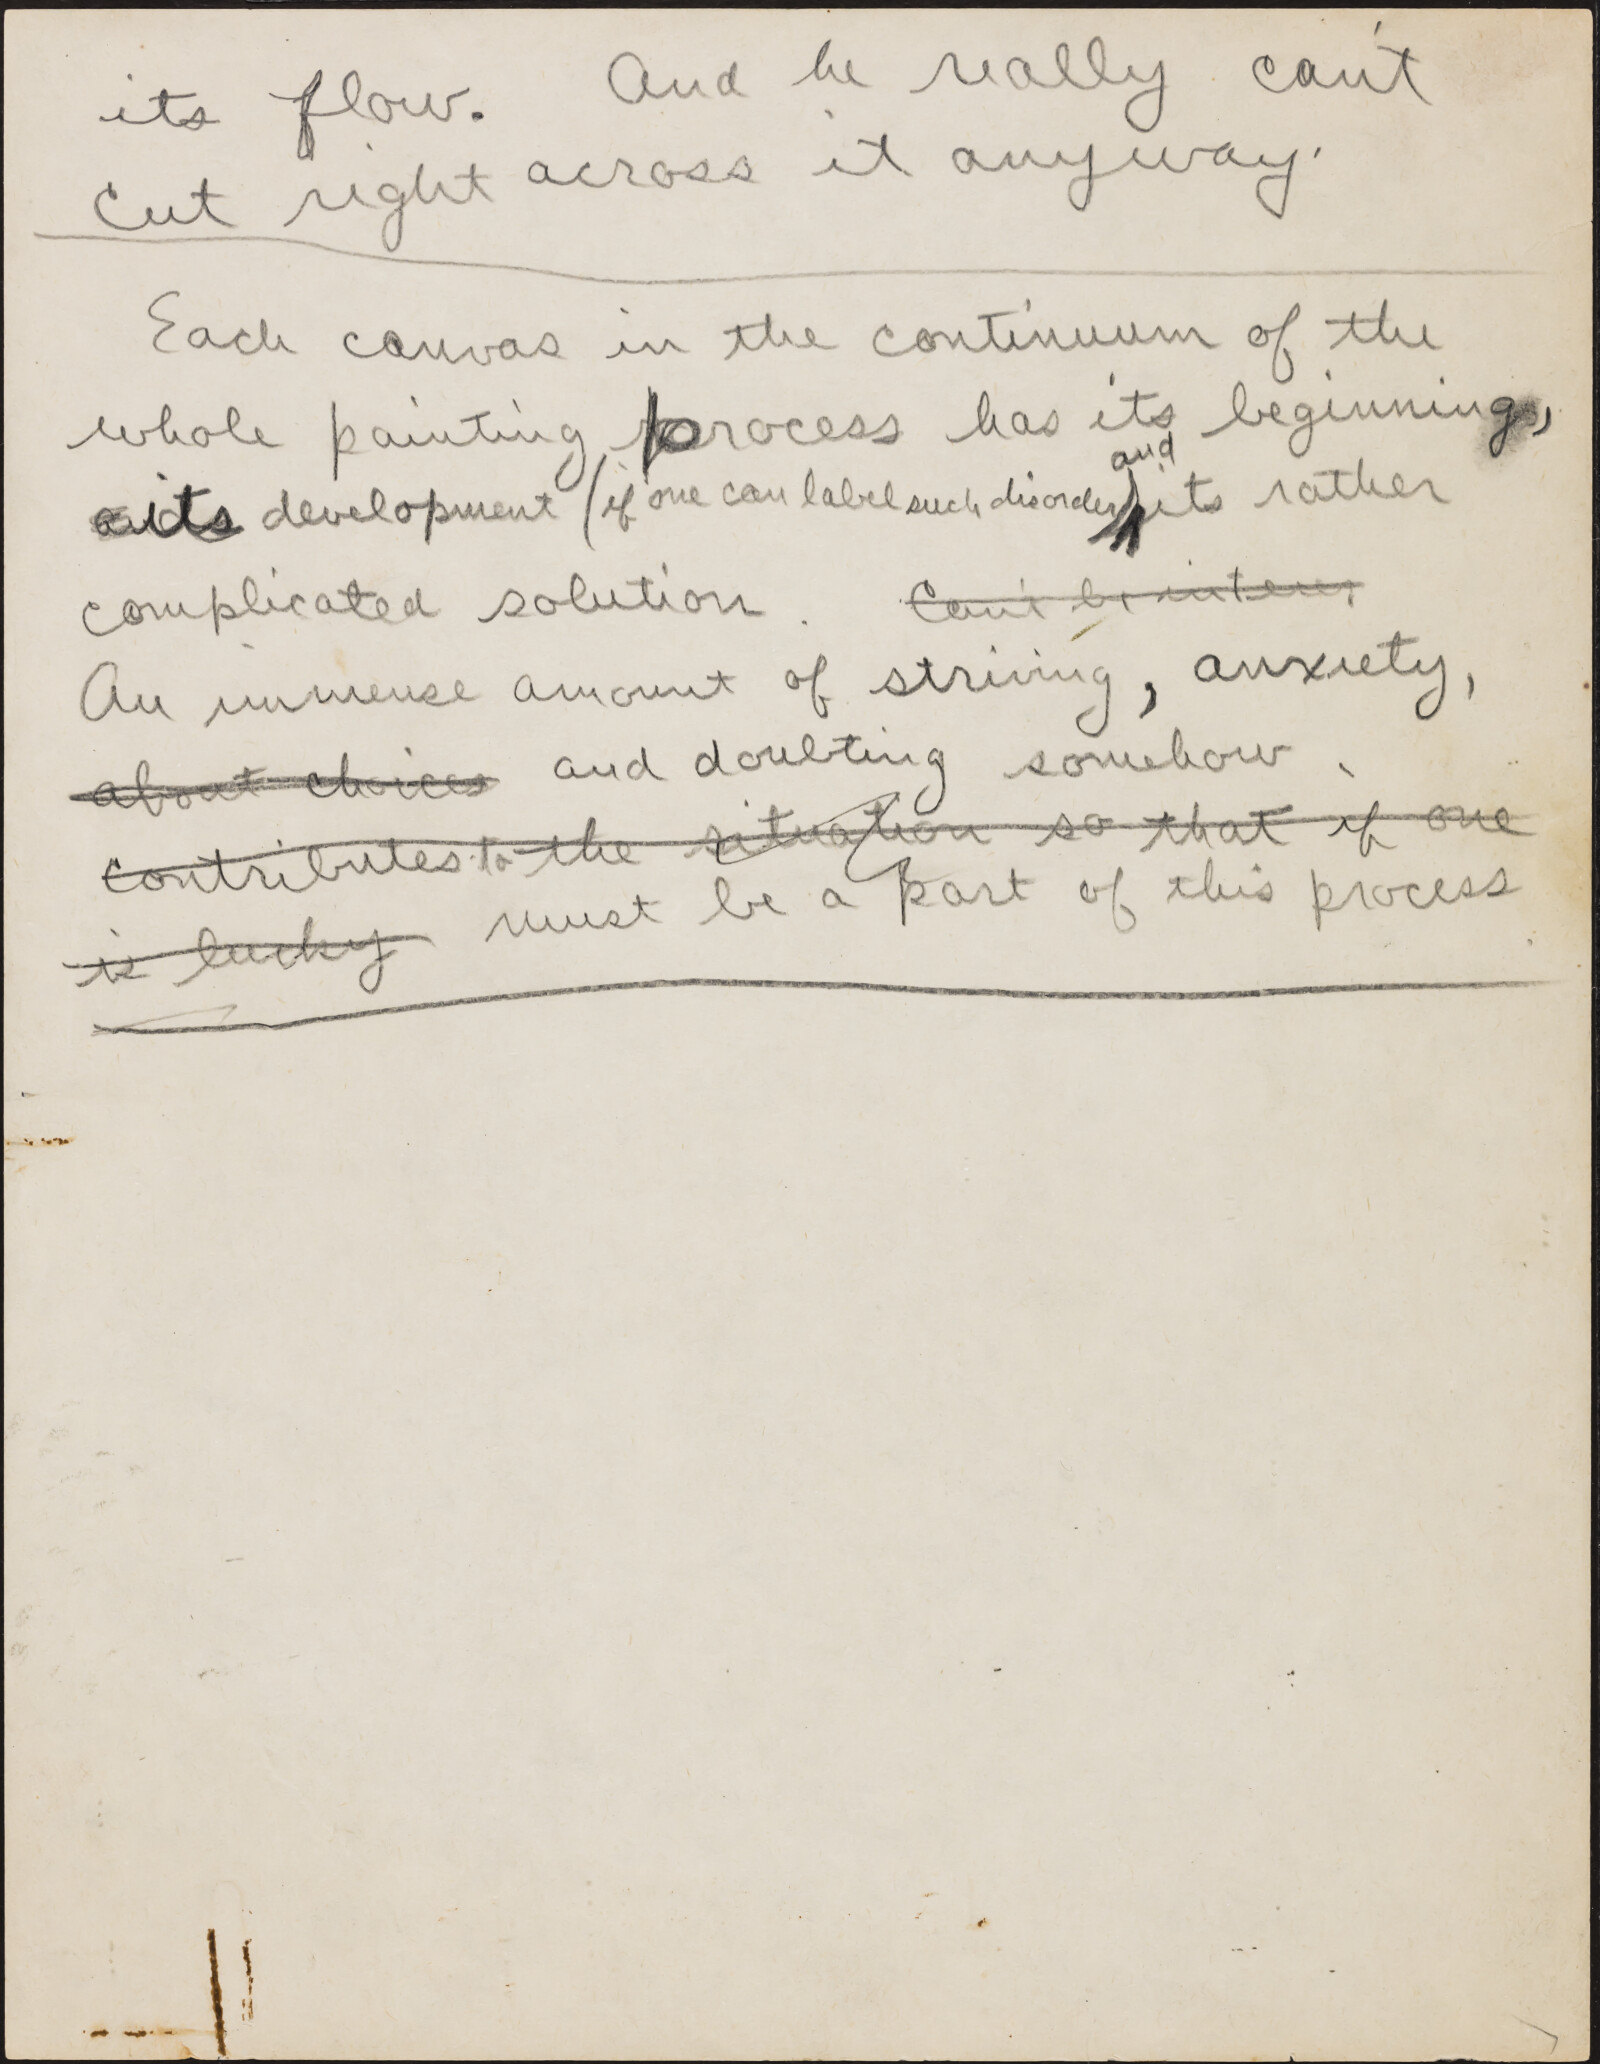 its flow. And he really can't
cut right across it anyway.
Each canvas in the continuum of the
whole painting process has its beginning,
its development (if one can label such disorder) and its rather
complicated solution. Can't be
An immense amount of striving, anxiety,
about choices and doubting somehow
contributes to the situation so that if one
is lucky must be a part of this process